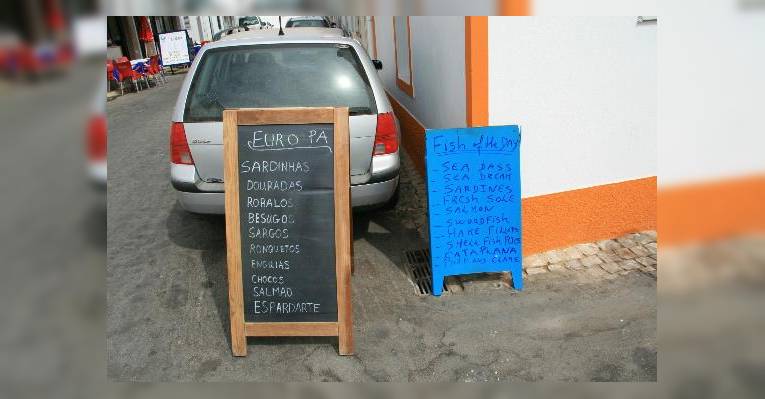 EUROPA
SARDINHAS
DOURADAS
ROBALOS
BESUGOS
SARGOS
RONQUETOS
ENGUIAS
CHOCOS
SALMAO
ESPARDARTE
Fish of the Day
- SEA BASS
- SEA BREAM
- SARDINES
- FRESH SOLE
- SALMON
- SWORDFISH
- HAKE
- SHELL FISH
- CATAPLANA